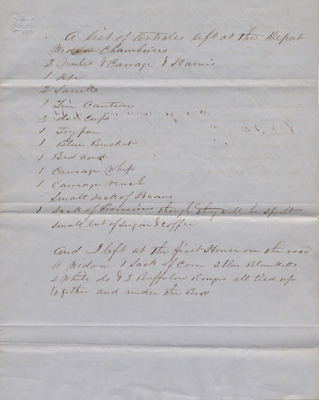 A list of Articles left at the Depot
Widow Chambers
2 Mules & Carrage & Harnis
1 Axe
2 Sacks
1 Tin Canteen
3 do Cups
1 Frypan
1 Blue Bucket
1 Bed Cord
1 Carrage Whip
1 Carrage rench
Small Sack of Beans
1 Sack of Provisions though they will be spoilt
Small lot of Sugar & Coffee
And I left at the first House on the road
a Widow 1 Sack of Corn 2 blue Blanketts
2 White do & 2 Buffalow all tied up
together and under the Bed